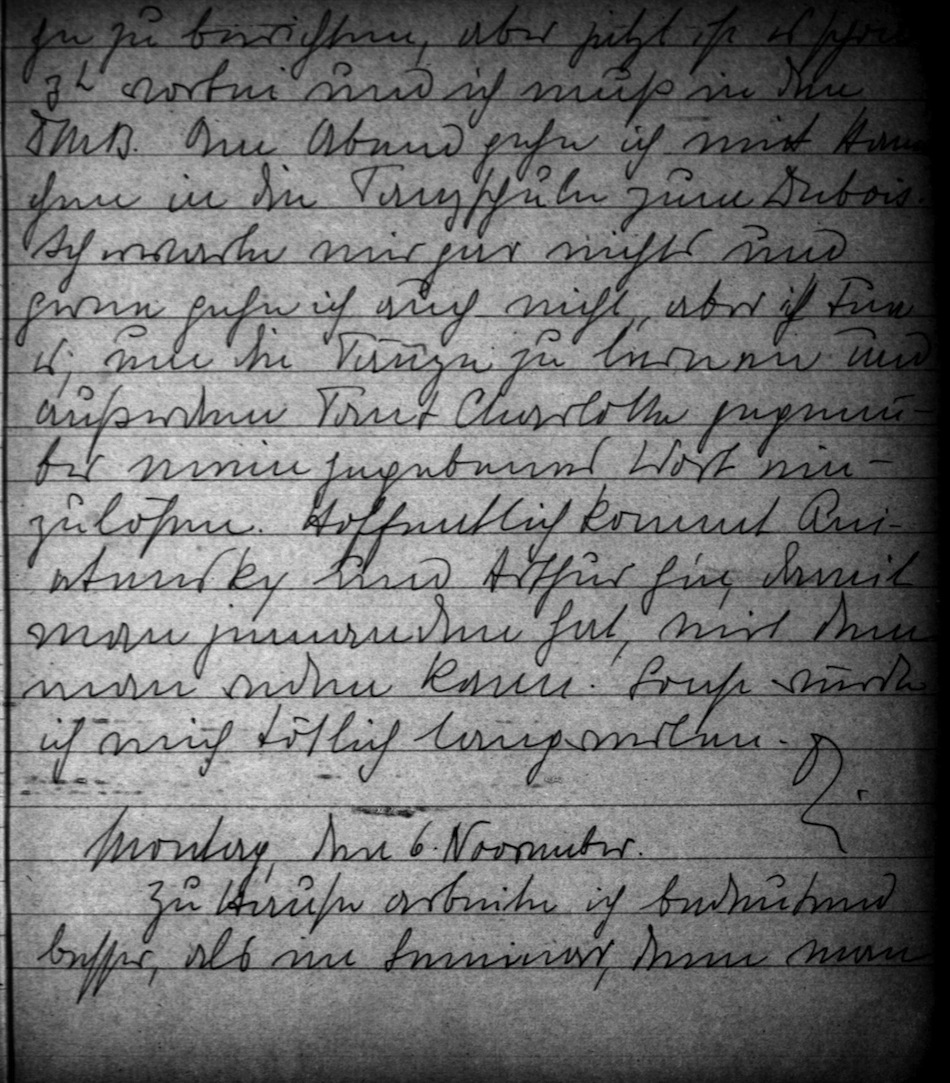 zu berichten, aber jetzt ist es schon
3h vorbei und ich muß in den
Am Abend gehe ich mit Hann-
chen in die Tanzschule zum Dubois.
Ich erwarte mir gar nichts und
gerne gehe ich auch nicht, aber ich tue
es, um die Tänze zu lernen und
außerdem Tant Charlotte gegenü-
ber mein gegebenes Wort ein-
zulösen. Hoffentlich kommt
und Arthur hin, damit
man jemanden hat, mit dem
man reden kann. Sonst würde
ich mich tötlich langweilen.
Montag, den 6. November.
Zu Hause arbeite ich bedeutend
besser, als im Seminar, denn man